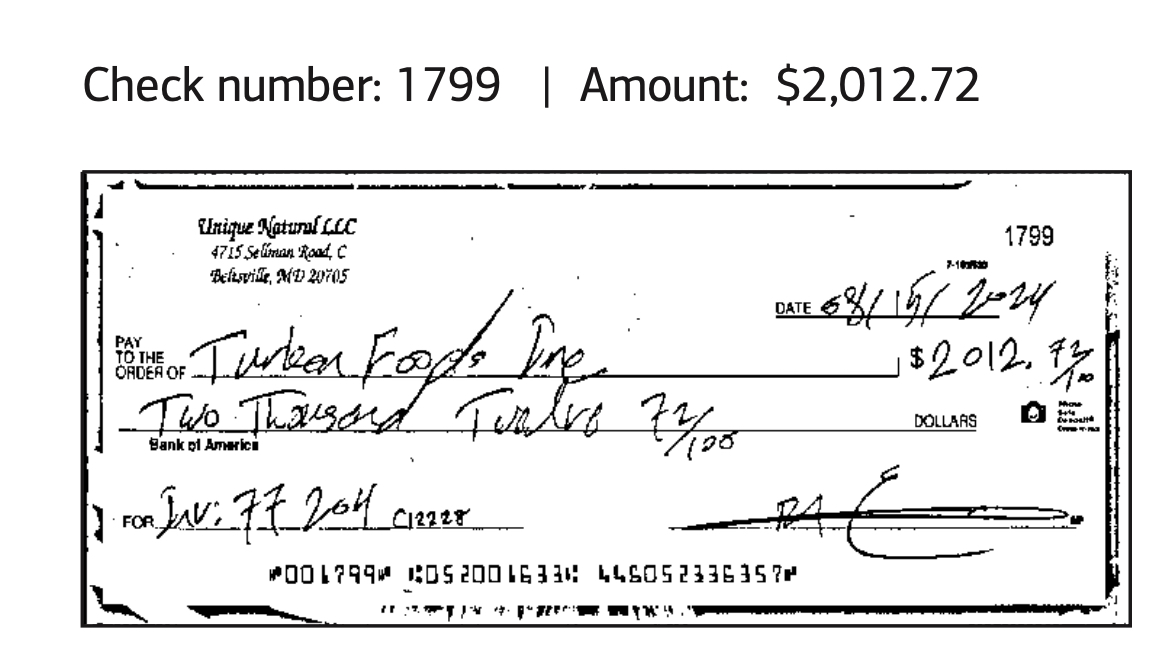 Check number: 1799 | Amount: $2,012.72
Unique Natural LLC
4715 Sellman Road, C
Beltsville, MD 20705
1799
DATE 08/15/2024
PAY TO THE ORDER OF Turkan Foods Inc $2012.72/100
Two Thousand Twelve 72/100 DOLLARS
Photo Safe Deposit®
Bank of America
FOR Inv: 77204 C12228
MP
⑈001799⑈ ⑆052001633⑆ 446052336357⑈